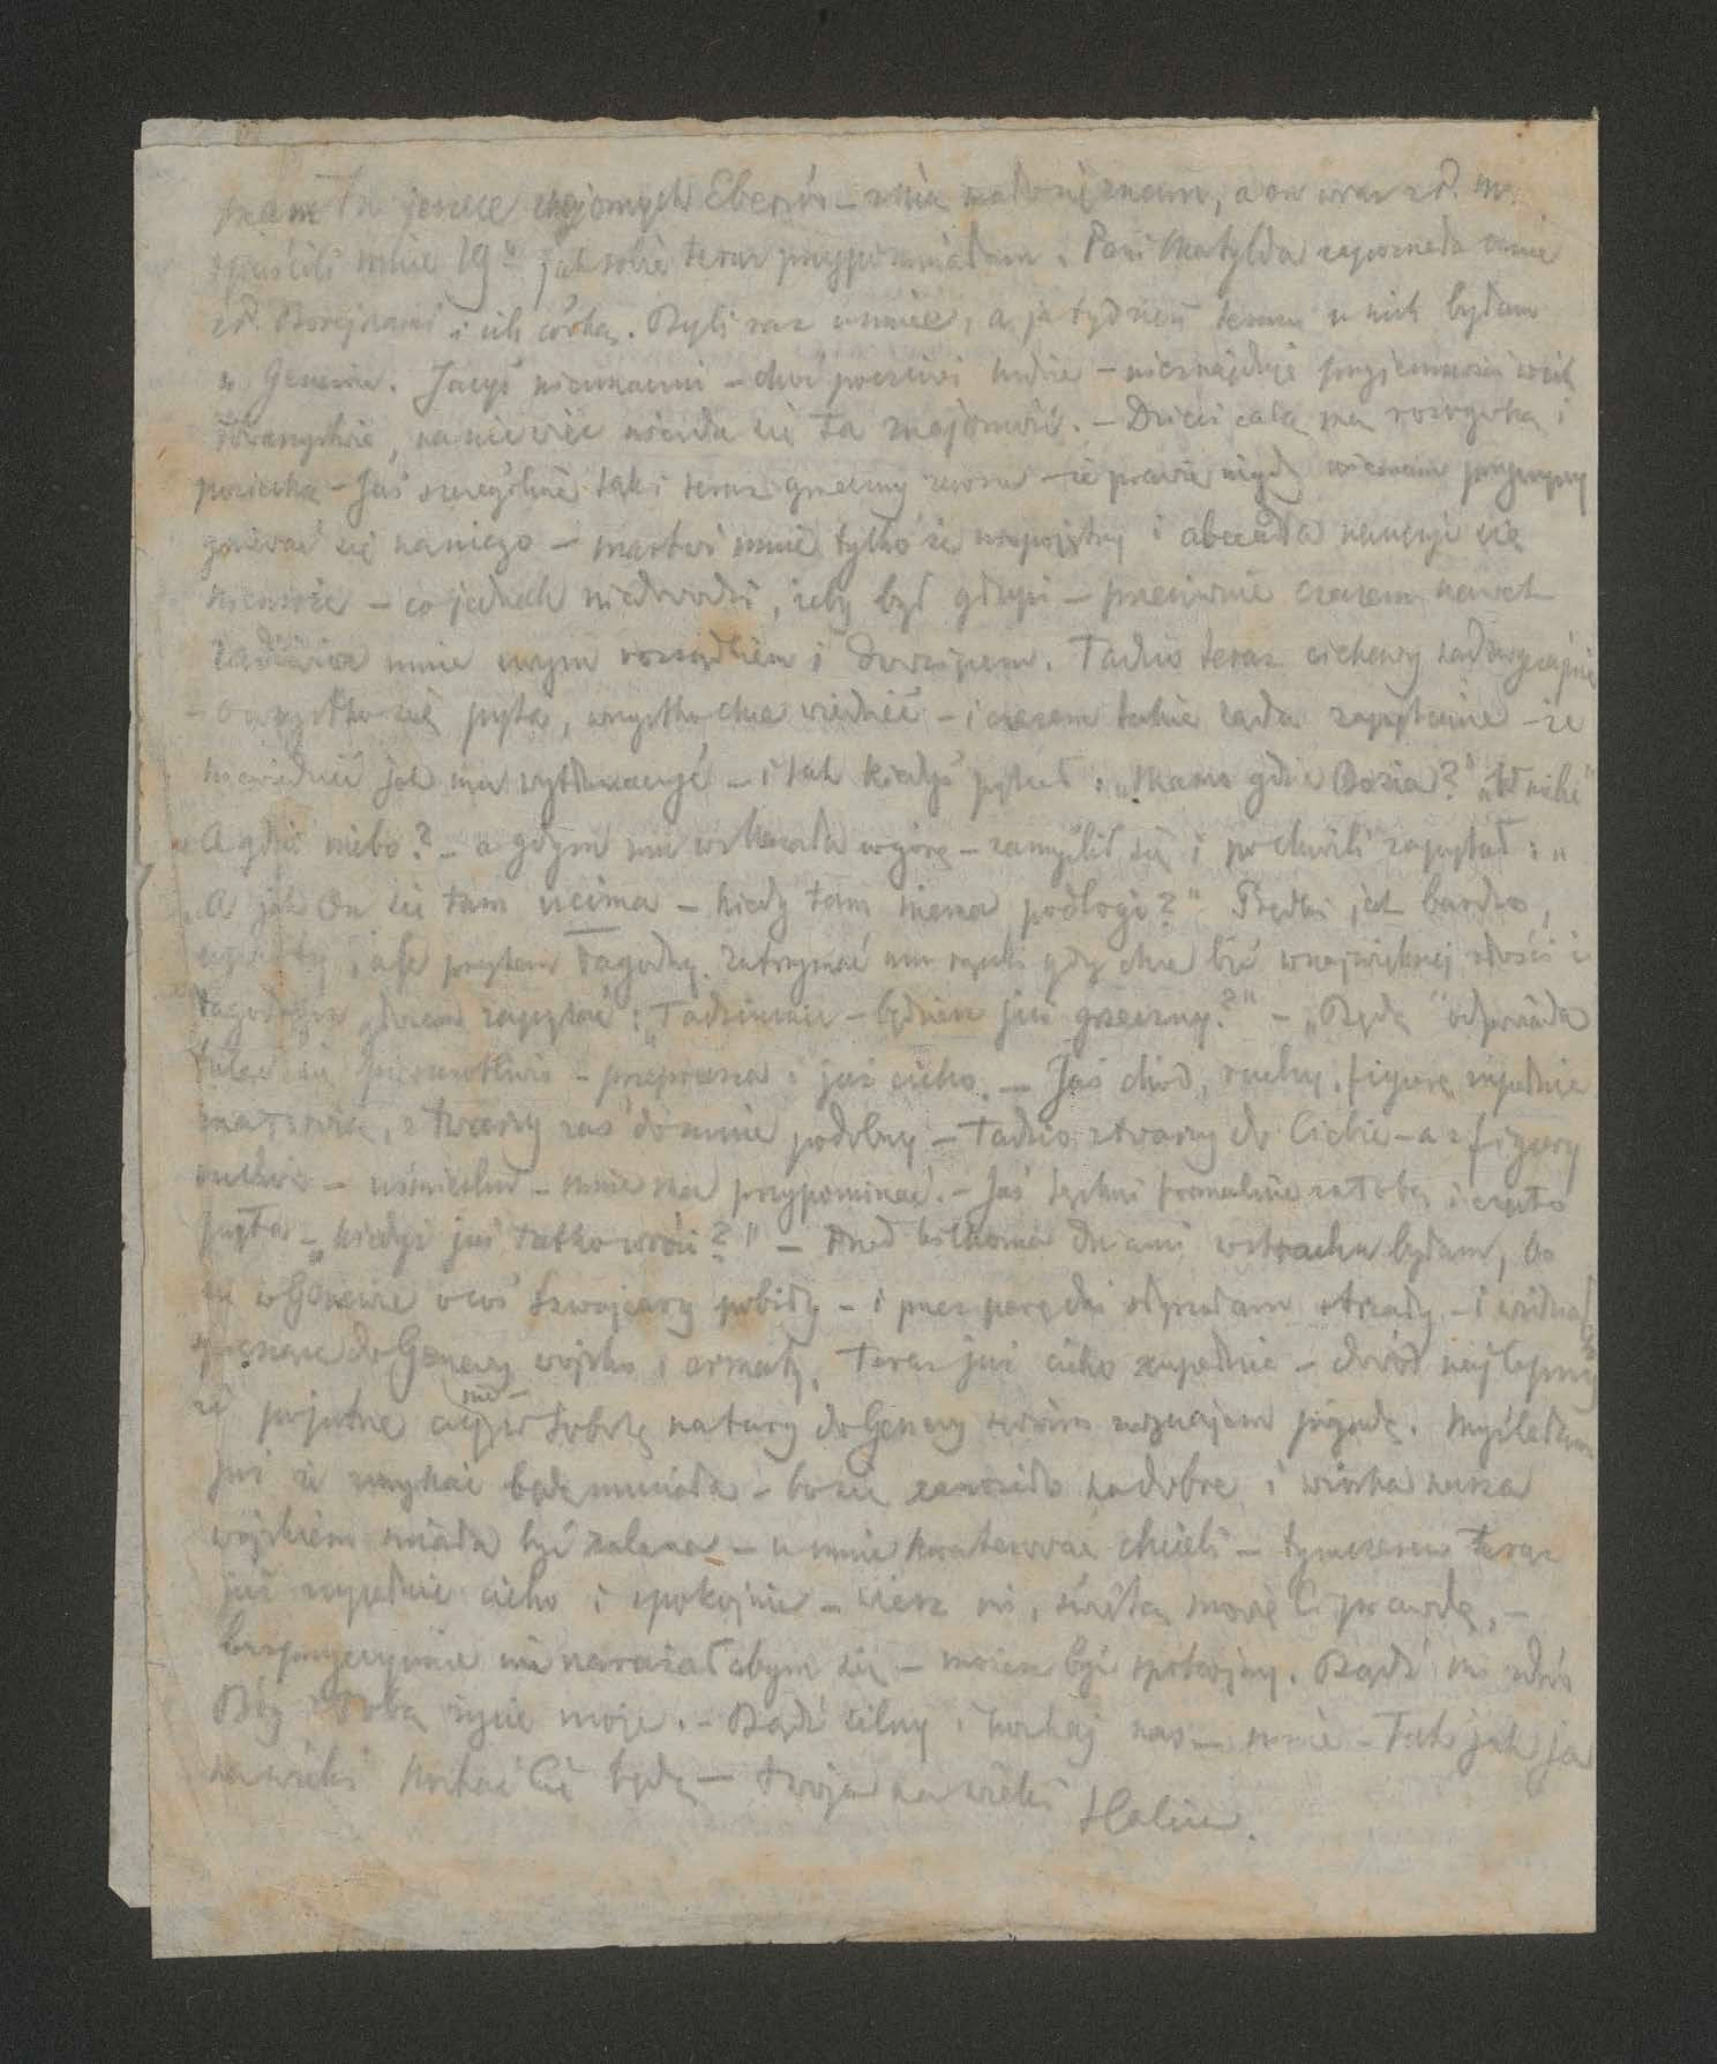 mam tu jeszcze znajomych Eberów – z nią mało się znam, a on wraz z P. M.
mnie 19º jak sobie teraz przypominałam. Pani Matylda zapoznała mnie
z P. i ich córką. Byli raz u mnie, a ja tydzień temu u nich byłam
w Genewie. Jacyś nieciekawi – choć poczciwi ludzie – nieznajduję przyjemności w ich
towarzystwie, na nic więc niezda się ta znajomość. – Dzieci całą mą rozrywką i
pociechą – Jaś szczególnie taki teraz grzeczny – że prawie nigdy niemam przyczyny
gniewać się naniego – martwi mnie tylko że niepojętny i abecadła nauczyć się
niemoże – co jednak niedowodzi, żeby był głupi – przeciwnie czasem nawet
zadziwia mnie swym rozsądkiem i dowcipem. Tadzio teraz ciekawy nadzwyczajnie
– o wszystko się pyta, wszystko chce wiedzieć – i czasem takie zada zapytanie – że
niewiedzieć jak mu wytłumaczyć – i tak kiedyś pytał: „Mamo gdzie Bozia?" „W niebie"
„A gdzie niebo? – a gdym mu wskazała w górę – zamyślił się i po chwili zapytał: „
„A jak On się tam ucima – kiedy tam niema podłogi?" Prędki jest bardzo,
uparty, ale przytem łagodny. Zatrzymać mu rączki gdy chce bić w największej złości i
łagodnie zapytać: „Tadziuniu – będziesz już grzeczny?" – „Będę" odpowiada
tuląc się – przeprasza i już cicho. – Jaś chód, ruchy, figurę zupełnie
ma, z twarzy zaś do mnie podobny – Tadzio z twarzy do Ciebie – a z figury
– uśmiechu – mnie ma przypominać. – Jaś tęskni formalnie za Tobą i często
pyta – „kiedyż już tatko wróci?" – Przed kilkoma dniami w strachu byłam, bo
się w Genewie o coś Szwajcary pobiły – i przez parę dni słyszałam strzały – i widziałam
do Genewy wojsko i armaty. Teraz już cicho zupełnie – dowód najlepszy
że pojutrze w Sobotę na targ do Genewy z wynajem jadę. Myślałam
już że zmykać będę musiała – bo się zanosiło na dobre i wioska nasza
wojskiem miała być zalana – u mnie kwaterować chcieli – tymczasem teraz
już zupełnie cicho i spokojnie – wierz mi, świętą mówię Ci prawdę, –
bezprzyczynnie nie narażałabym się – możesz być spokojny. Bądź mi zdrów
Bóg z Tobą życie moje. – Bądź silny i kochaj nas – mnie – Tak jak ja
na wieki kochać Cię będę – Twoja na wieki
Halina.